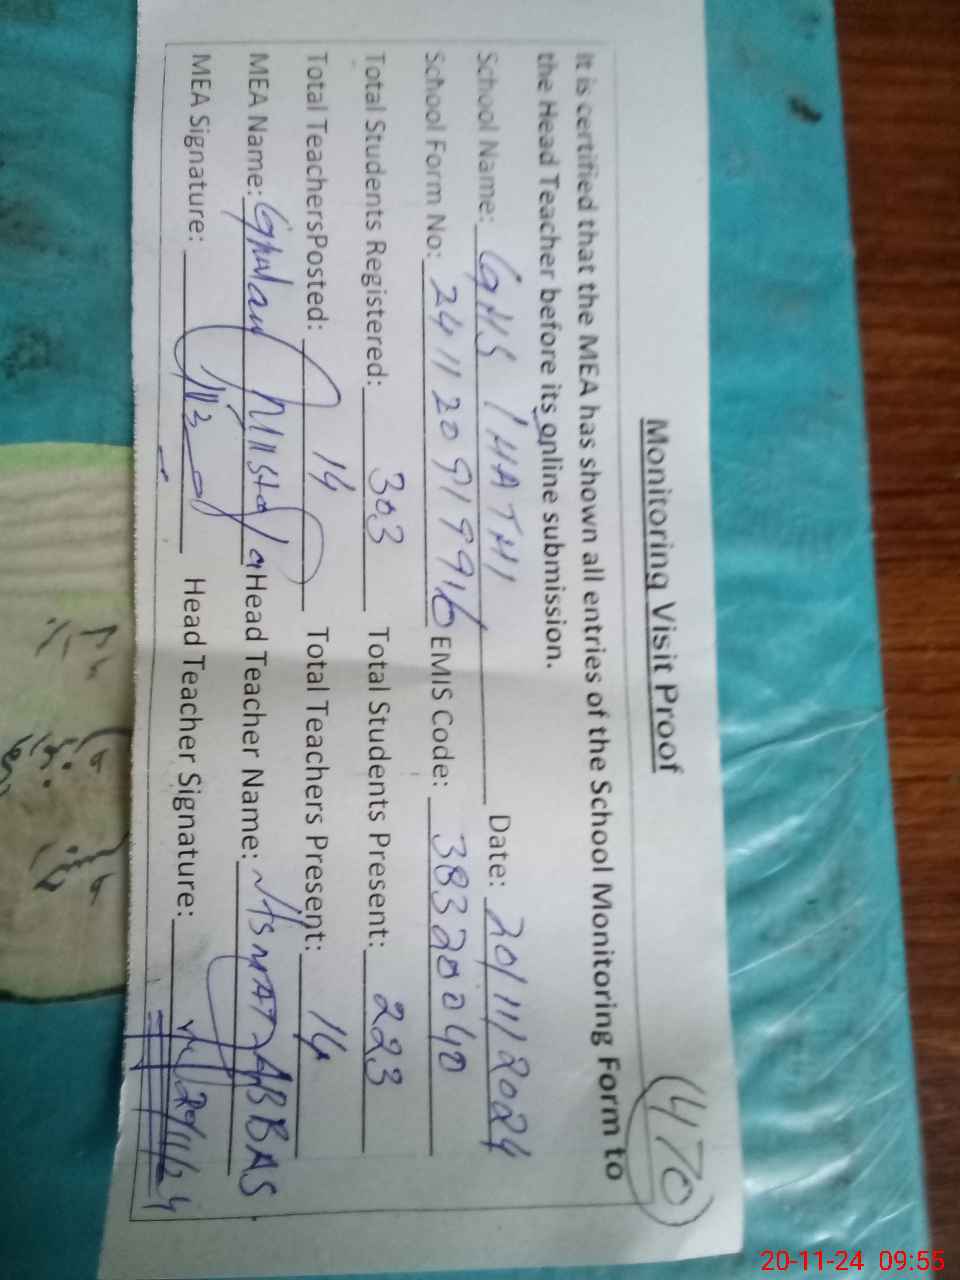 (470)
Monitoring Visit Proof
It is certified that the MEA has shown all entries of the School Monitoring Form to
the Head Teacher before its online submission.
School Name: GHS 1HATHI Date: 20/11/2024
School Form No: 241120919916 EMIS Code: 38320040
Total Students Registered: 303 Total Students Present: 223
Total TeachersPosted: 14 Total Teachers Present: 14
MEA Name: Head Teacher Name: ABBAS
MEA Signature: Head Teacher Signature: 20/11/24
20-11-24 09:55